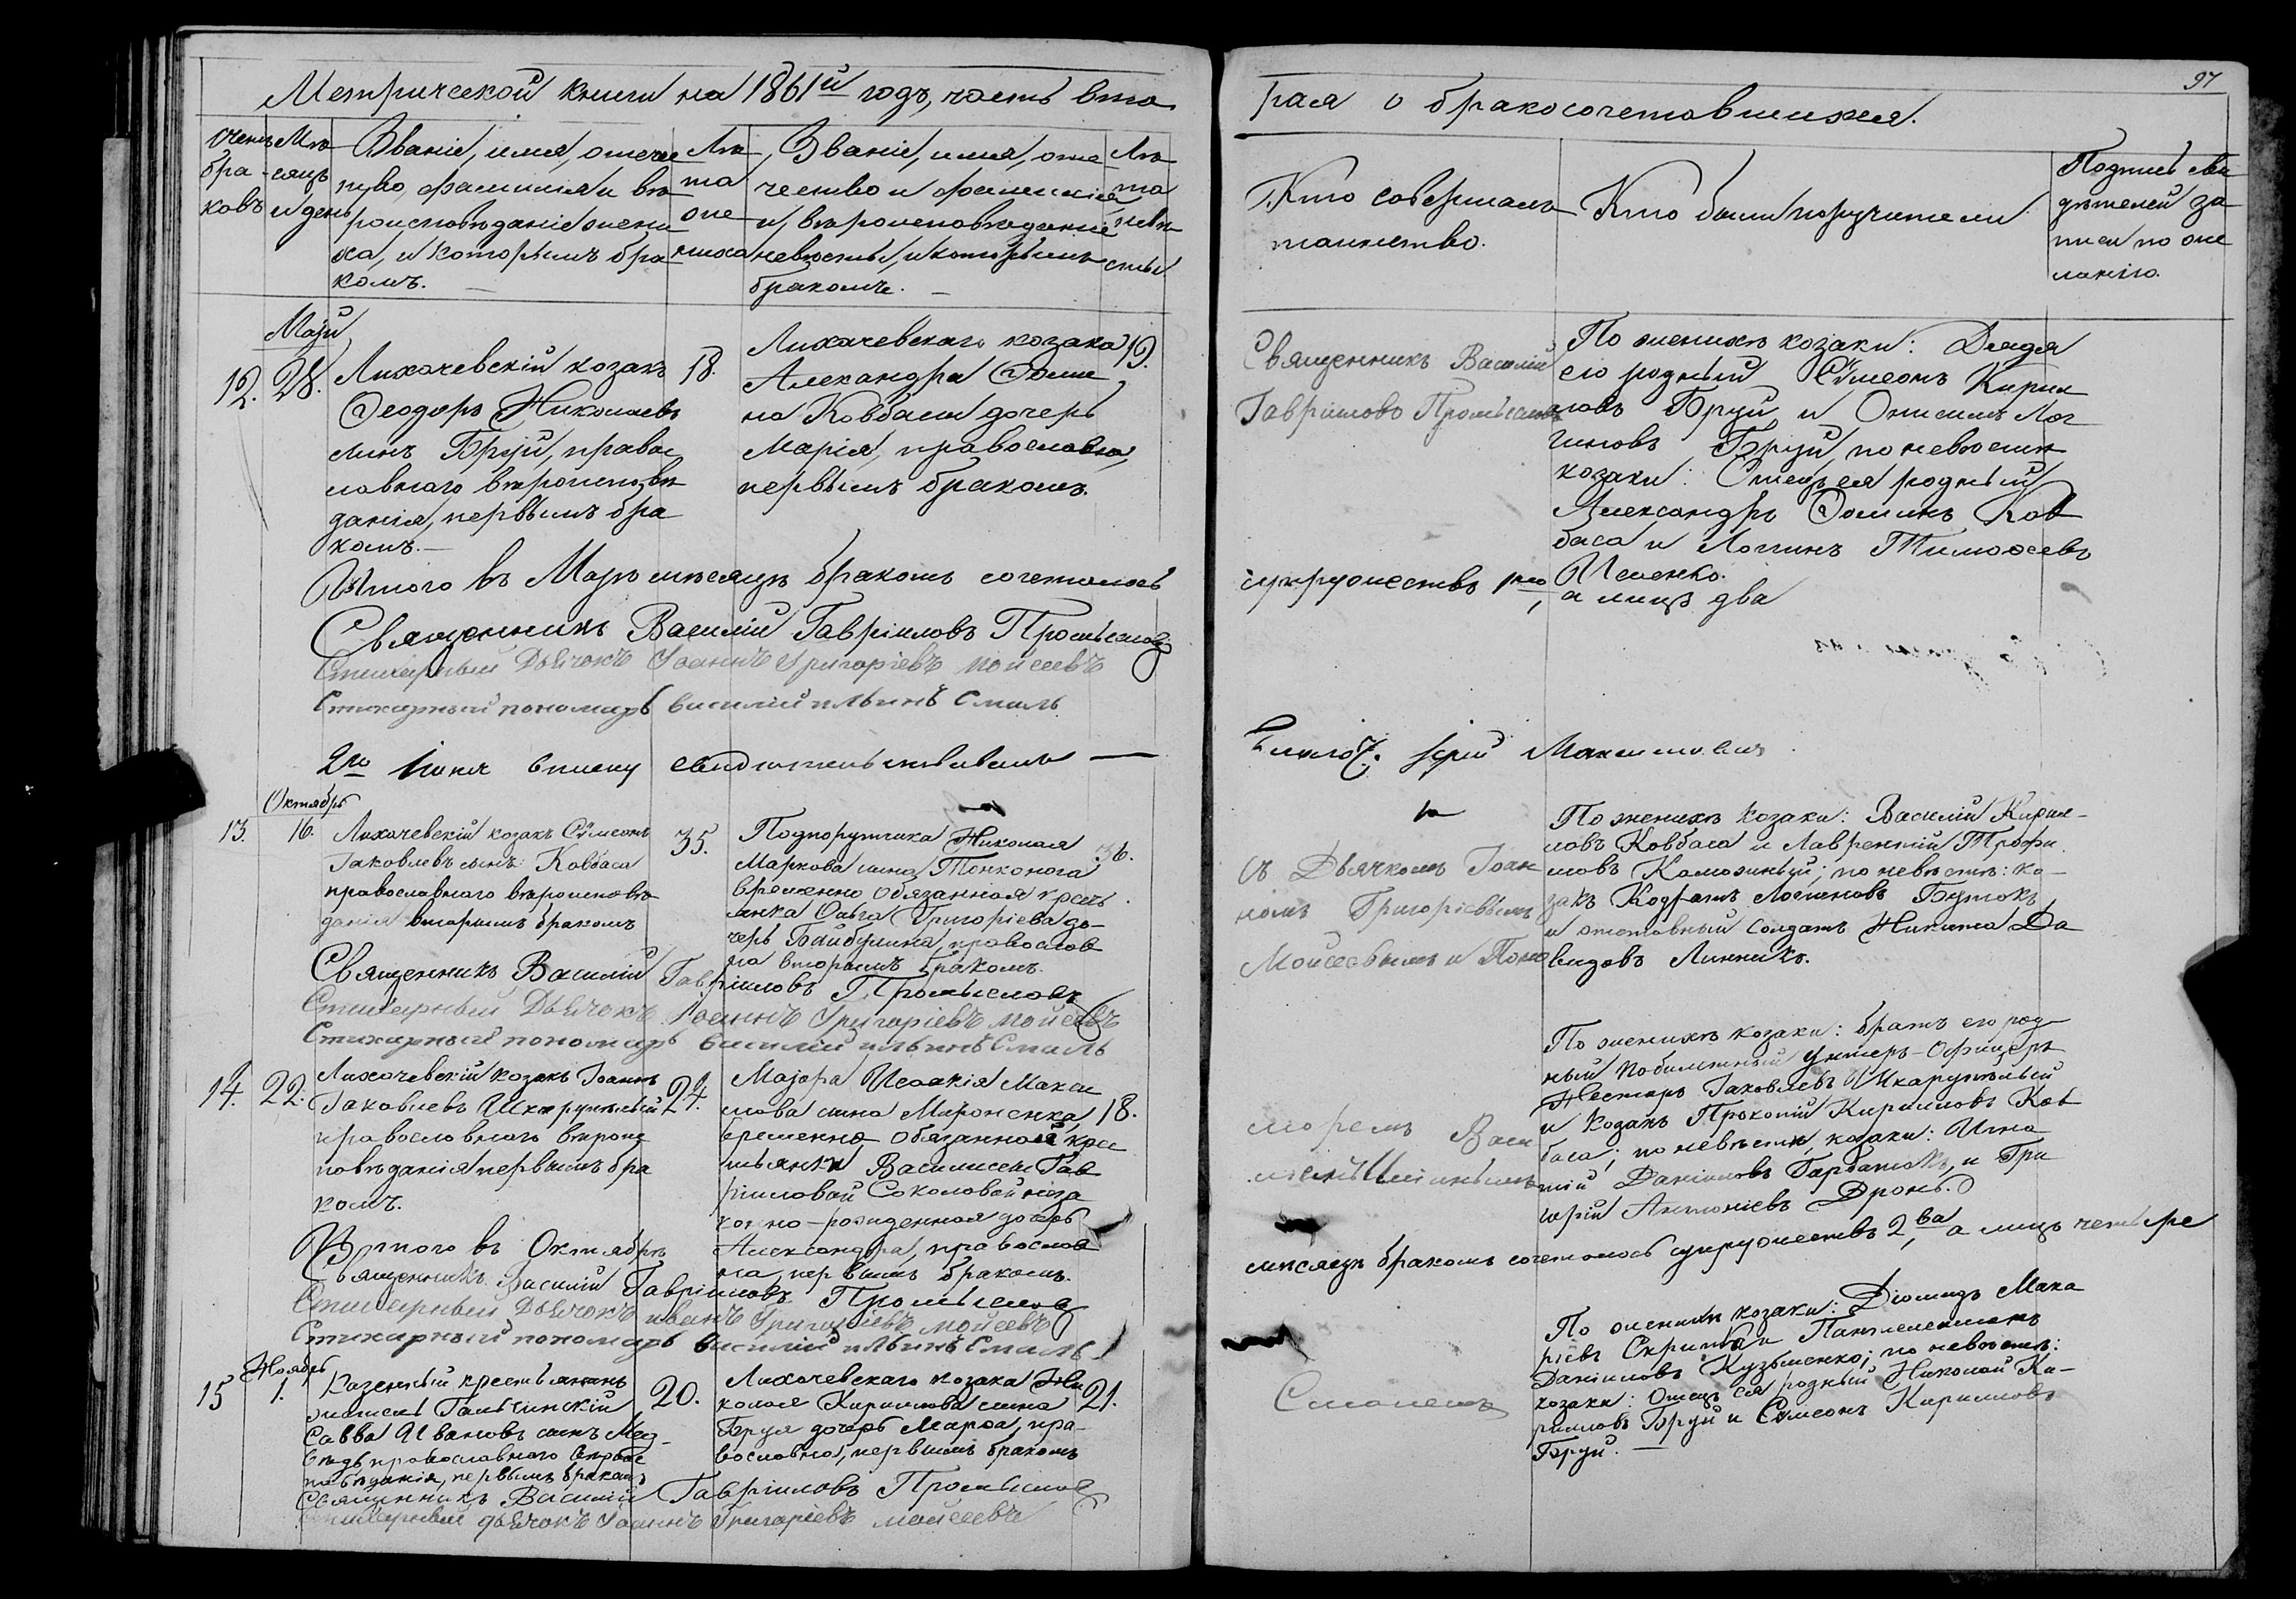 97
Метрической книги на 1861й годъ, часть вто
рая о бракосочетавшихся.
Счетъ бра-ковъ
Мѣ-сяцъ и день
Званіе, имя, отече
ство, фамилія и вѣ
роисповѣданіе жени
ха, и которымъ бра
комъ.
Лѣ
та
же
ниха
Званіе, имя, оте
чество и фамилія
и вѣроисповѣданіе
невѣсты, и которымъ
бракомъ.
Лѣ
та
невѣ
сты.
Кто совершалъ
таинство.
Кто были поручители
Подпись сви
дѣтелей за
писи по же
ланію.
Маій
12. 28.
Лихачевскій козакъ
Ѳеодоръ Николаевъ
сынъ Бруй, правос
лавнаго вѣроисповѣ
данія, первымъ бра
комъ.
18.
Лихачевскаго козака
Александра Ѳоми
на Ковбасы дочерь
Марія, православна,
первымъ бракомъ.
19.
Священникъ Василій
Гавріиловъ Промысловъ
По женихѣ козаки: Дядя
его родный Сѵмеонъ Кирил
ловъ Бруй и Онисимъ Лог
гиновъ Бруй, по невѣстѣ
козаки: Отецъ ея родный
Александръ Ѳоминъ Ков
баса и Логгинъ Тимоѳеевъ
Исаенко.
Итого въ Маѣ мѣсяцѣ бракомъ сочеталось
супружествъ 1но, а лицъ два
Священникъ Василій Гавріиловъ Промысловъ
Стихарный Дьячокъ Іоаннъ Григоріевъ Моисеевъ
Стихарный пономарь Василій Ильинъ Смаль
2го Іюня списку свидѣтельствовалъ —
Благоч: Іерей Максимовичъ
Октябрь
13. 16.
Лихачевскій козакъ Сѵмеонъ
Іаковлевъ сынъ Ковбаса
православнаго вѣроисповѣ
данія вторымъ бракомъ
35.
Подпоручика Николая
Маркова сына Тонконога
временно обязанная кресть
янка Ольга Григоріева до-
черь Байбурина, православ
на вторымъ бракомъ.
36.
съ Дьячкомъ Іоан
номъ Григоріевымъ
Моисеевымъ и Поно
По женихѣ козаки: Василій Кирил-
ловъ Ковбаса и Лаврентій Трофи
мовъ Каможный; по невѣстѣ: ко-
закъ Кодратъ Логиновъ Бутокъ
и отставный солдатъ Никита Да
видовъ Линникъ.
Священникъ Василій Гавріиловъ Промысловъ
Стихарный Дьячокъ Іоаннъ Григоріевъ Моисеевъ
Стихарный пономарь Василій Ильинъ Смаль
14. 22.
Лихачевскій козакъ Іоаннъ
Іаковлевъ Шкарупѣлый
православнаго вѣроис
повѣданія первымъ бра
комъ.
24.
Маіора Исаакія Макси
мова сына Мироненка,
временно обязанной крес
тьянки Василисы Гав
ріиловой Соколовой неза
конно-рожденная дочерь
Александра, православ
на, первымъ бракомъ.
18.
маремъ Васи
ліемъ Ильинымъ
По женихѣ козаки: братъ его род
ный побилетный Унтеръ-Офицеръ
Несторъ Іаковлевъ Шкарупѣлый
и козакъ Прокопій Кирилловъ Ков
баса; по невѣстѣ, козаки: Игна
тій Даніиловъ Гарбатокъ, и Гри
горій Антоніевъ Дронь.
Итого въ Октябрѣ
мѣсяцѣ бракомъ сочеталось супружествъ 2ва, а лицъ четыре
Священникъ Василій Гавріиловъ Промысловъ
Стихарный Дьячокъ Иванъ Григоріевъ Моисеевъ
Стихарный пономарь Василій Ильинъ Смаль
Ноябрь
15 1.
Казенный крестьянинъ
Савва Ивановъ сынъ Мед-
вѣдь православнаго вѣроис
повѣданія, первымъ бракомъ
20.
Лихачевскаго козака Ни
колая Кириллова сына
Бруя дочерь Марѳа, пра-
вославна, первымъ бракомъ
21.
Смалемъ
По женихѣ козаки: Діомидъ Мака
ріевъ Скрипка и Пантелеимонъ
Даніиловъ Кузьменко; по невѣстѣ:
козаки: Отецъ ея родный Николай Ки-
рилловъ Бруй и Сѵмеонъ Кирилловъ
Бруй. —
Священникъ Василій Гавріиловъ Промысловъ
Стихарный Дьячокъ Іоаннъ Григоріевъ Моисеевъ